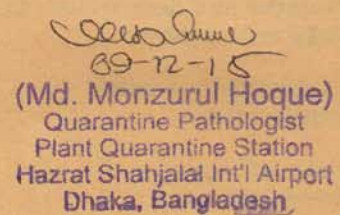 09-12-15
(Md. Monzurul Hoque)
Quarantine Pathologist
Plant Quarantine Station
Hazrat Shahjalal Int'l Airport
Dhaka, Bangladesh